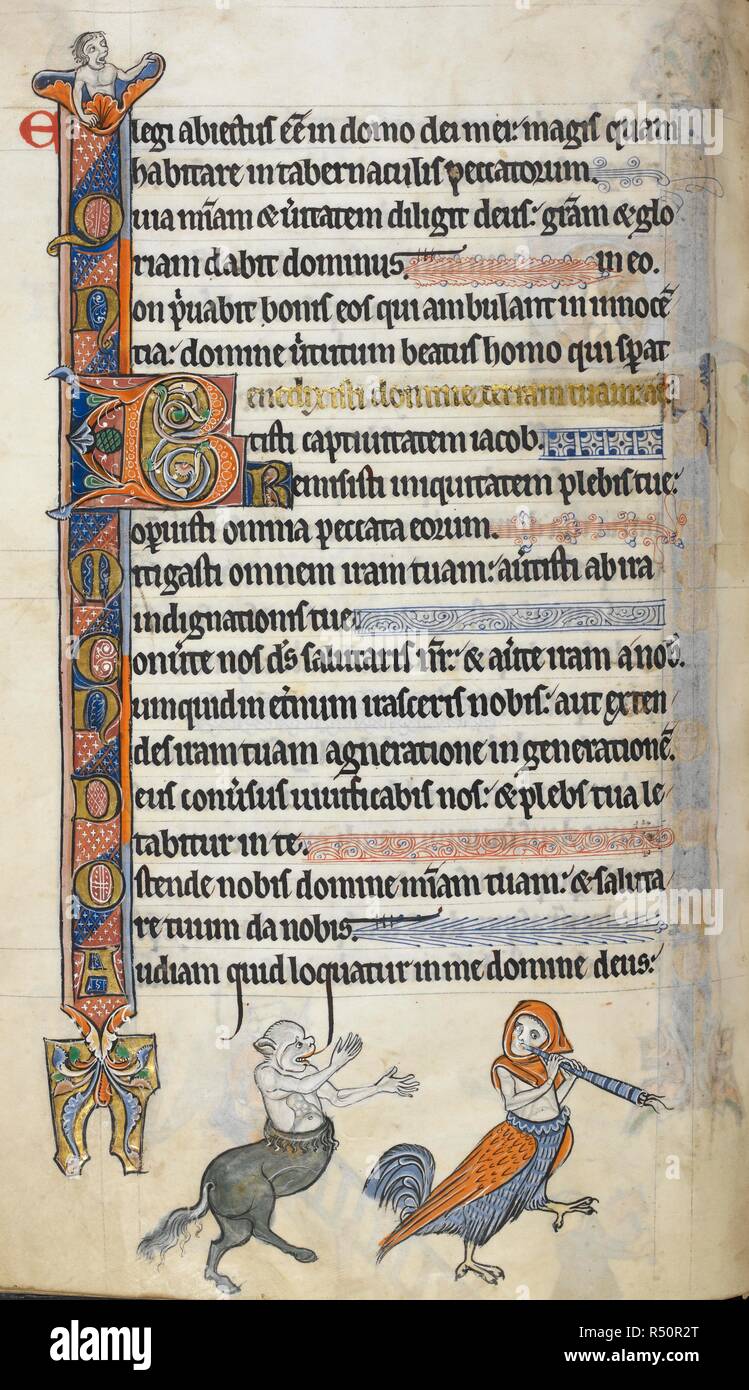 Elegi abiectus ee̅ in domo dei mei: magis quam
habitare in tabernaculis peccatorum.
Quia mi̅am & u̓itatem diligit deus: gr̅am & glo
riam dabit dominus in eo.
Non p̓uabit bonis eos qui ambulant in innoce̅
tia: domine u̓tutum beatus homo qui sp̓at
Benedixisti domine terram tuam:
tisti captiuitatem iacob.
Remisisti iniquitatem plebis tue:
op̓uisti omnia peccata eorum.
Mitigasti omnem iram tuam: au̓tisti ab ira
indignationis tue.
Conu̓te nos d̅s salutaris nr̅: & au̓te iram a nob̓.
Nunquid in et̓num irasceris nobis: aut exten
des iram tuam a gneratione in generatione̅.
Deus conu̓sus uiuificabis nos: & plebs tua le
tabitur in te.
Ostende nobis domine mi̅am tuam: & saluta
re tuum da nobis.
Audiam quid loquatur in me domine deus:
alamy
Image ID: R50R2T
www.alamy.com